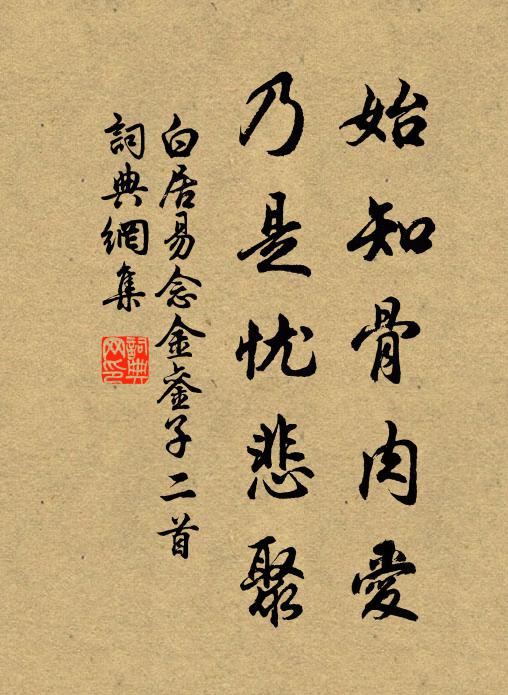 始知骨肉愛
乃是忧悲聚
白居易念金銮子二首
詞典網集
詞典
网印